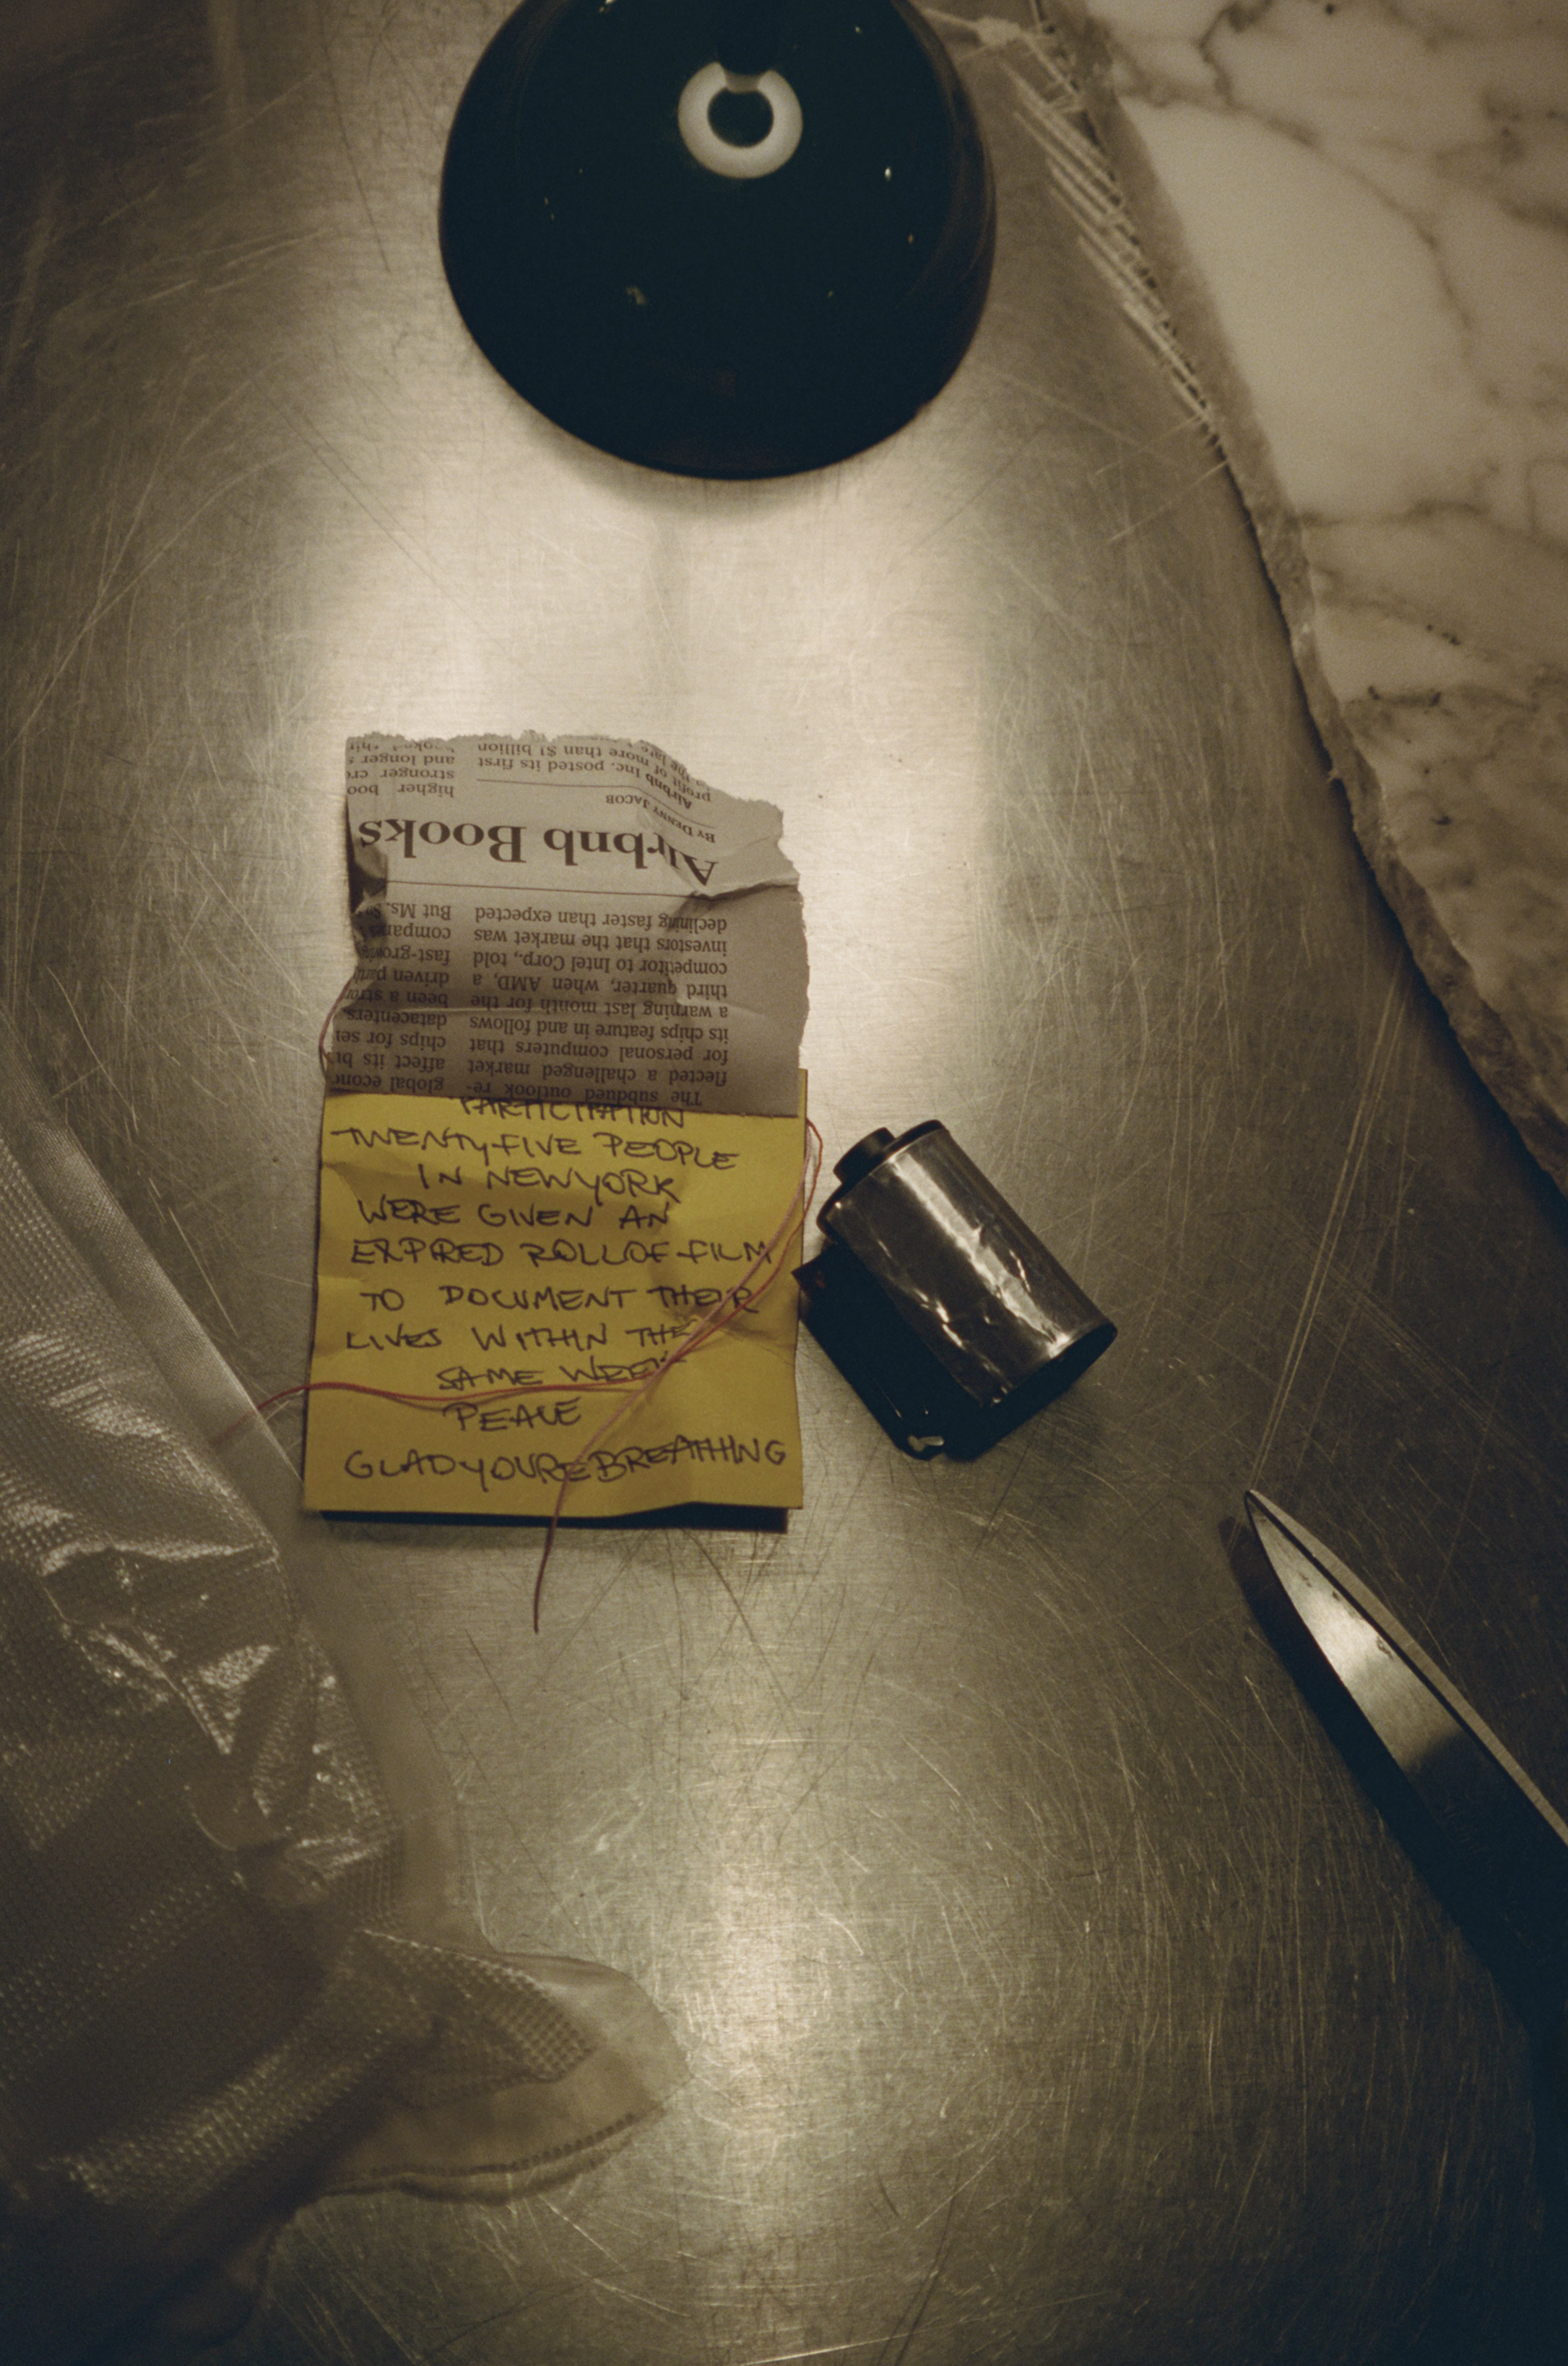 PARTICIPATION
TWENTY-FIVE PEOPLE
IN NEW YORK
WERE GIVEN AN
EXPIRED ROLL OF FILM
TO DOCUMENT THEIR
LIVES WITHIN THE
SAME WEEK
PEACE
GLADYOUREBREATHING
The subdued outlook re-
flected a challenged market
for personal computers that
its chips feature in and follows
a warning last month for the
third quarter, when AMD, a
competitor to Intel Corp., told
investors that the market was
declining faster than expected
global
affect its
chips for
datacenters
been a
driven
fast-growing
But Ms.
Airbnb Books
BY DENNY JACOB
Airbnb Inc. posted its first
profit of more than $1 billion
higher
stronger
and longer